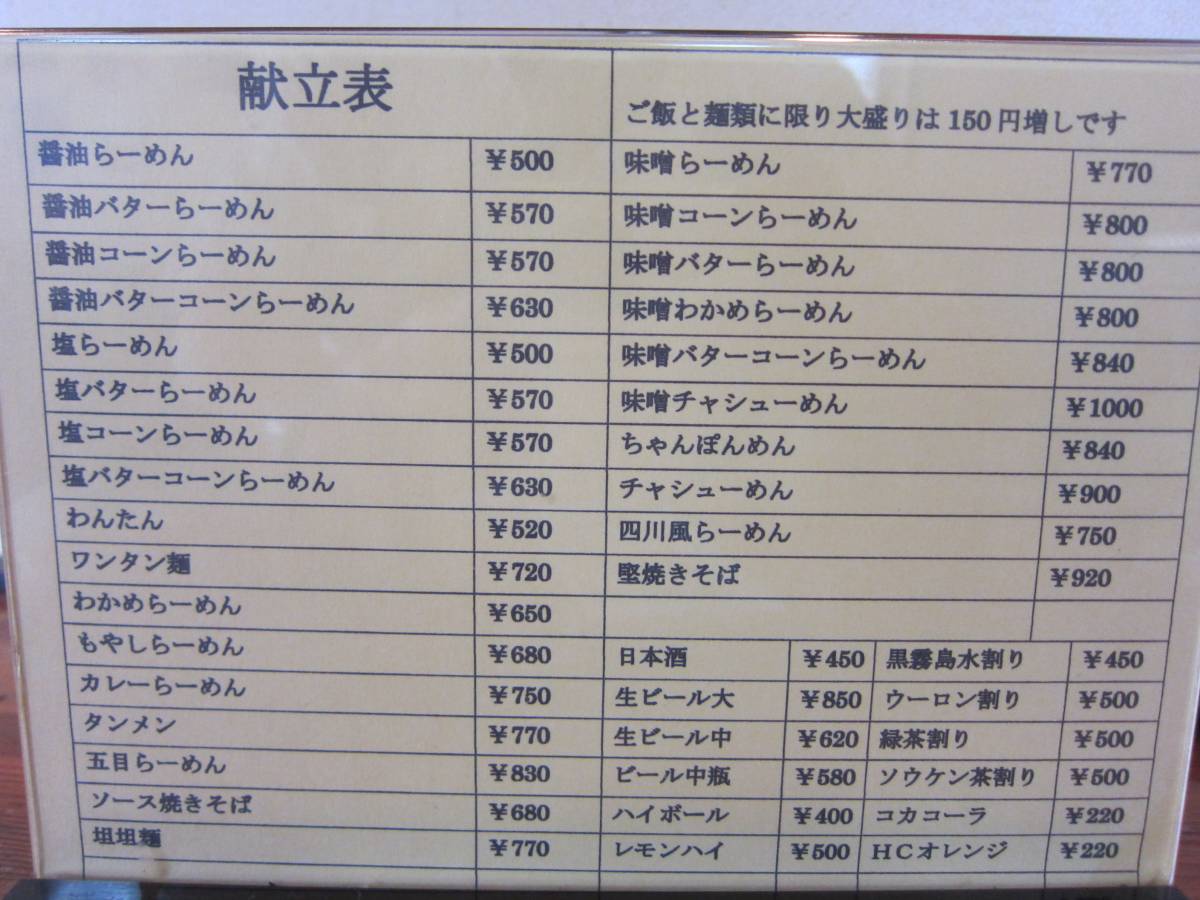 献立表
醤油らーめん ￥500
醤油バターらーめん ￥570
醤油コーンらーめん ￥570
醤油バターコーンらーめん ￥630
塩らーめん ￥500
塩バターらーめん ￥570
塩コーンらーめん ￥570
塩バターコーンらーめん ￥630
わんたん ￥520
ワンタン麺 ￥720
わかめらーめん ￥650
もやしらーめん ￥680
カレーらーめん ￥750
タンメン ￥770
五目らーめん ￥830
ソース焼きそば ￥680
坦坦麺 ￥770
ご飯と麺類に限り大盛りは150円増しです
味噌らーめん ￥770
味噌コーンらーめん ￥800
味噌バターらーめん ￥800
味噌わかめらーめん ￥800
味噌バターコーンらーめん ￥840
味噌チャシューめん ￥1000
ちゃんぽんめん ￥840
チャシューめん ￥900
四川風らーめん ￥750
堅焼きそば ￥920
日本酒 ￥450 黒霧島水割り ￥450
生ビール大 ￥850 ウーロン割り ￥500
生ビール中 ￥620 緑茶割り ￥500
ビール中瓶 ￥580 ソウケン茶割り ￥500
ハイボール ￥400 コカコーラ ￥220
レモンハイ ￥500 ＨＣオレンジ ￥220